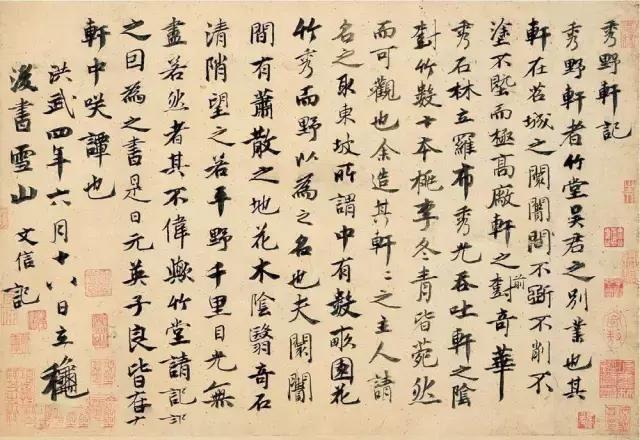 秀野軒記
秀野軒者竹堂吳君之別業也其
軒在苕城之闤闠間不斲不削不
塗不墍而極高敞軒之前對奇華
秀石林立羅布秀光吞吐軒之陰
對竹數十本桃李冬青皆菀然
而可觀也余造其軒〻之主人請
名之取東坡所謂中有數畝園花
竹秀而野以為之名也夫闤闠
間有蕭散之地花木陰翳奇石
清陗望之若平野千里目光無
盡若然者其不偉歟竹堂請記
之因為之書是日元英子良皆在
軒中咲譚也
洪武四年六月十八日立穐
後書雪山文信記